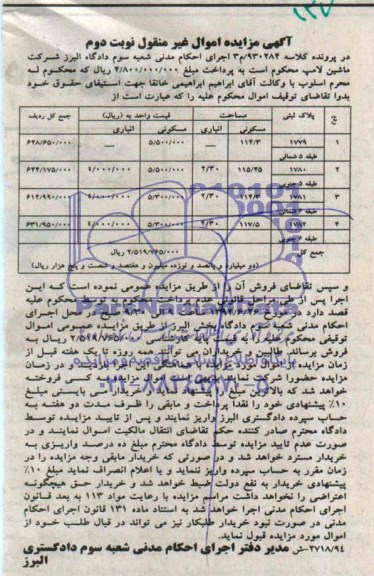 آگهی مزایده اموال غیر منقول نوبت دوم
در پرونده کلاسه ۹۳۰۲۸۴/م۳ اجرای احکام مدنی شعبه سوم دادگاه البرز شرکت
ماشین لامپ محکوم است به پرداخت مبلغ ۲/۸۰۰/۰۰۰/۰۰۰ ریال که محکوم له
محرم اسلوب با وکالت آقای ابراهیم ابراهیمی خانقا جهت استیفای حقوق خود
بدوا تقاضای توقیف اموال محکوم علیه را که عبارت است از
ج پلاک ثبتی مساحت قیمت واحد به (ریال) جمع کل ردیف
مسکونی انباری مسکونی انباری
۱ ۱۷۷۹ طبقه ۵ شمالی ۱۱۴/۳ — ۵/۵۰۰/۰۰۰ — ۶۲۸/۶۵۰/۰۰۰
۲ ۱۷۸۰ طبقه ۵ جنوبی ۱۱۵/۴۵ ۲/۳۰ ۵/۵۰۰/۰۰۰ ۴/۰۰۰/۰۰۰ ۶۴۴/۱۷۵/۰۰۰
۳ ۱۷۸۱ شمالی ۱۱۴/۳ ۲/۳۰ ۵/۳۰۰/۰۰۰ ۴/۰۰۰/۰۰۰ ۶۱۴/۹۹۰/۰۰۰
۴ ۱۷۸۲ جنوبی ۱۱۷/۵ ۲/۳۰ ۵/۳۰۰/۰۰۰ ۴/۰۰۰/۰۰۰ ۶۳۱/۹۵۰/۰۰۰
جمع کل ۲/۵۱۹/۷۶۵/۰۰۰ ریال
(دو میلیارد و پانصد و نوزده میلیون و هفتصد و شصت و پنج هزار ریال)
و سپس تقاضای فروش آن را از طریق مزایده عمومی نموده است که این
اجرا پس از طی مراحل قانونی عدم پرداخت محکوم به توسط محکوم علیه
قصد دارد در مورخ در محل اجرای
احکام مدنی شعبه سوم دادگاه بخش البرز از طریق مزایده عمومی اموال
توقیفی محکوم علیه را به قیمت پایه کارشناسی ۲/۵۱۹/۷۶۵/۰۰۰ ریال به
فروش برساند. طالبین و خریداران می توانند پنج روز تا یک هفته قبل از
زمان مزایده از اموال مورد مزایده با هماهنگی این اجرا بازدید و در زمان
مزایده حضورا شرکت نمایند مورد مزایده به کسی فروخته
خواهد شد که بالاترین مبلغ را پیشنهاد نماید. خریدار می بایستی مبلغ
۱۰٪ پیشنهادی خود را نقدا پرداخت و مابقی را ظرف مدت دو هفته به
حساب سپرده دادگستری البرز واریز نمایند و پس از تایید مزایده توسط
دادگاه محترم صادر کننده حکم تقاضای انتقال مالکیت اموال نمایند و در
صورت عدم تایید مزایده توسط دادگاه محترم مبلغ ده درصد واریزی به
خریدار مسترد خواهد شد و در صورتی که خریدار مابقی وجه مزایده را در
زمان مقرر به حساب سپرده واریز ننماید و یا اعلام انصراف نماید مبلغ ۱۰٪
پیشنهادی خریدار به نفع دولت ضبط خواهد شد و خریدار حق هیچگونه
اعتراضی را نخواهد داشت مراسم مزایده با رعایت مواد ۱۱۳ به بعد قانون
اجرای احکام مدنی اجرا خواهد شد به استناد ماده ۱۳۱ قانون اجرای احکام
مدنی در صورت نبود خریدار طلبکار نیز می تواند در قبال طلب خود از
اموال مورد مزایده قبول نماید.
۲۷۱۸/۹۴-ش مدیر دفتر اجرای احکام مدنی شعبه سوم دادگستری
البرز